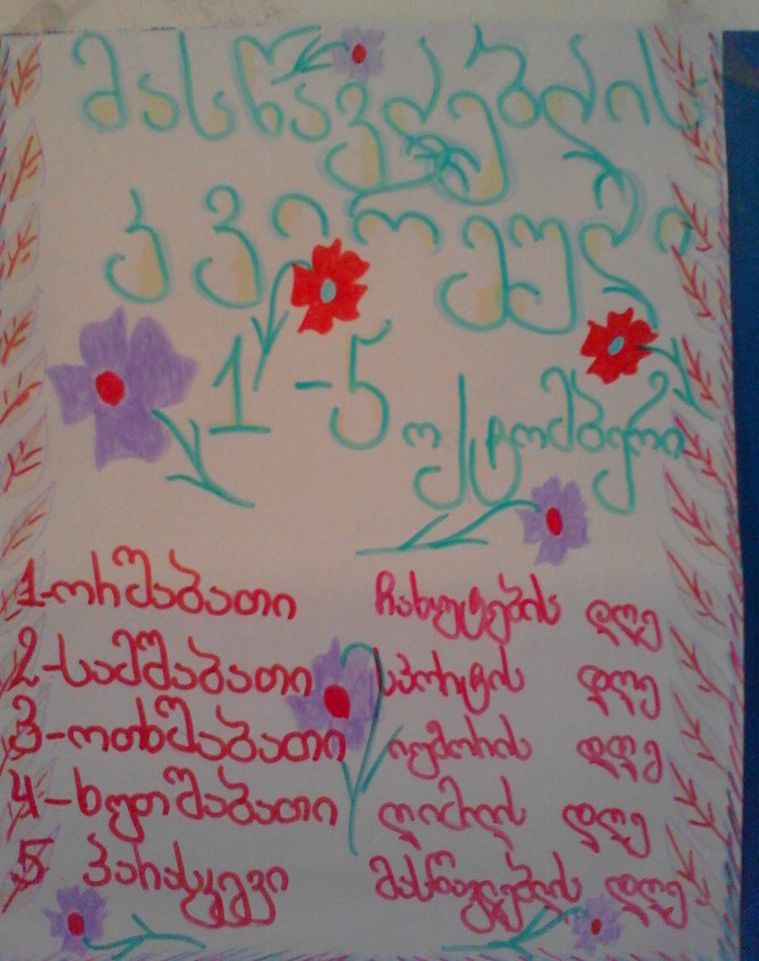 მასწავლებლის
კვირეული
1-5 ოქტომბერი
1-ორშაბათი ჩახუტების დღე
2-სამშაბათი სპორტის დღე
3-ოთხშაბათი იუმორის დღე
4-ხუთშაბათი ღიმილის დღე
5 პარასკევი მასწავლებლის დღე